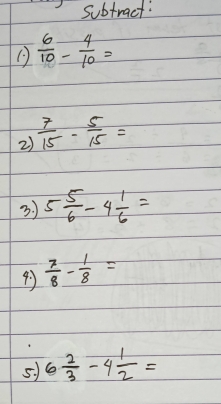 Subtract:
1.) 6/10 - 4/10 =
2.) 7/15 - 5/15 =
3.) 5 5/6 - 4 1/6 =
4.) 7/8 - 1/8 =
5.) 6 2/3 - 4 1/2 =